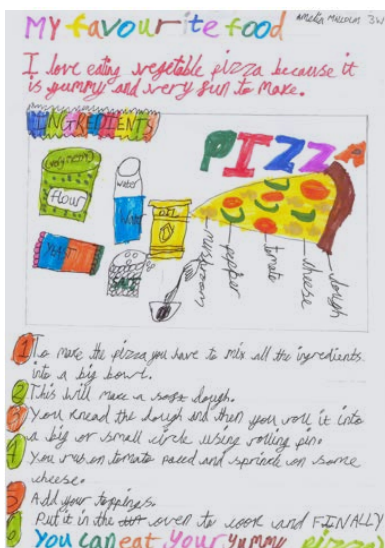 My favourite food
Amelia Malcolm 3W
I love eating vegetable pizza because it
is yummy and very fun to make.
INGREDIENTS
PIZZA
flour
water
OIL
YEAST
SALT
mushroom
pepper
tomato
cheese
dough
1 To make the pizza you have to mix all the ingredients
into a big bowl.
2 This will make a soft dough.
3 You knead the dough and then you roll it into
a big or small circle using rolling pin.
4 You rub on tomato and sprinkle on some
cheese.
5 Add your toppings.
6 Put it in the oven to cook and FINALLY
You can eat your yummy pizza